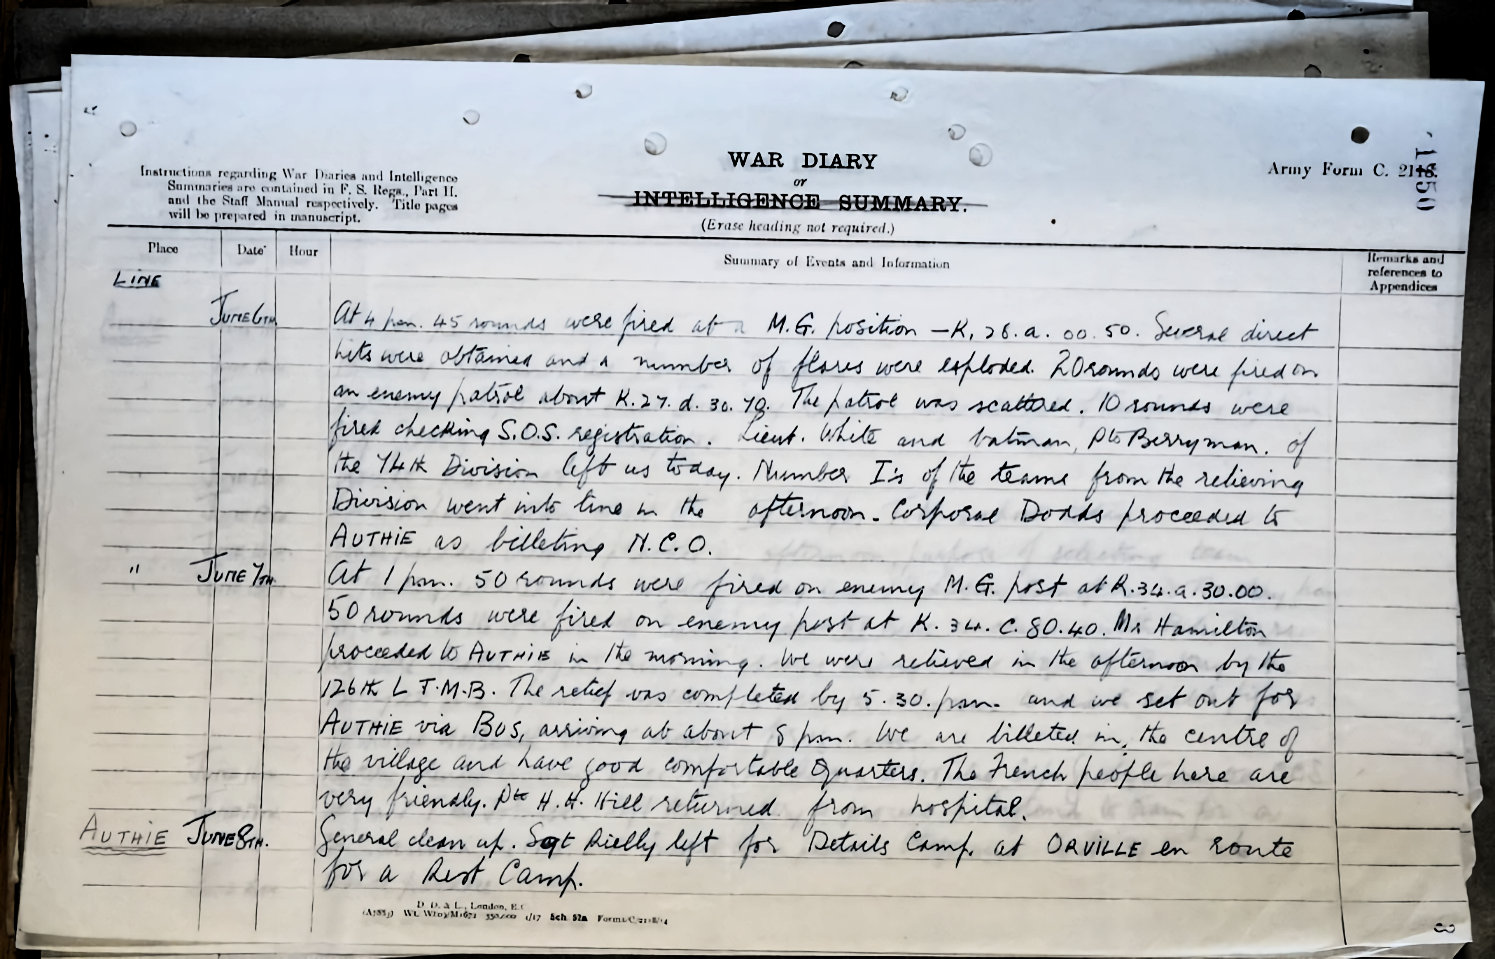 WAR DIARY
or
INTELLIGENCE SUMMARY.
(Erase heading not required.)
Instructions regarding War Diaries and Intelligence
Summaries are contained in F. S. Regs., Part II.
and the Staff Manual respectively. Title pages
will be prepared in manuscript.
Army Form C. 2118.
1550
Place Date Hour Summary of Events and Information Remarks and references to Appendices
LINE
JUNE 6TH At 4 p.m. 45 rounds were fired at a M.G. position – K, 28.a. 00.50. Several direct
hits were obtained and a number of flares were exploded. 20 rounds were fired on
an enemy patrol about K.27.d. 30.70. The patrol was scattered. 10 rounds were
fired checking S.O.S. registration. Lieut. White and batman, Pte Berryman, of
the 74th Division left us today. Number I's of the teams from the relieving
Division went into line in the afternoon. Corporal Dodds proceeded to
AUTHIE as billeting N.C.O.
" JUNE 7TH At 1 p.m. 50 rounds were fired on enemy M.G. post at K.34.a.30.00.
50 rounds were fired on enemy post at K.34.C.80.40. Mr Hamilton
proceeded to AUTHIE in the morning. We were relieved in the afternoon by the
126th L T.M.B. The relief was completed by 5.30.p.m. and we set out for
AUTHIE via BUS, arriving at about 8 p.m. We are billeted in the centre of
the village and have good comfortable quarters. The French people here are
very friendly. Pte H.H. Hill returned from hospital.
AUTHIE JUNE 8TH. General clean up. Sgt Rielly left for Details Camp. at ORVILLE en route
for a Rest Camp.
D. D. & L., London, E.C.
Sch. 52a